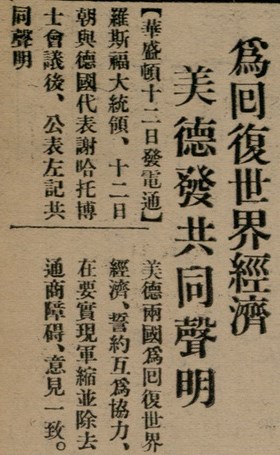 爲回復世界經濟
美德發共同聲明
【華盛頓十二日發電通】
羅斯福大統領、十二日
朝與德國代表謝哈托博
士會議後、公表左記共
同聲明
美德兩國爲回復世界
經濟、誓約互爲協力、
在要實現軍縮並除去
通商障碍、意見一致。